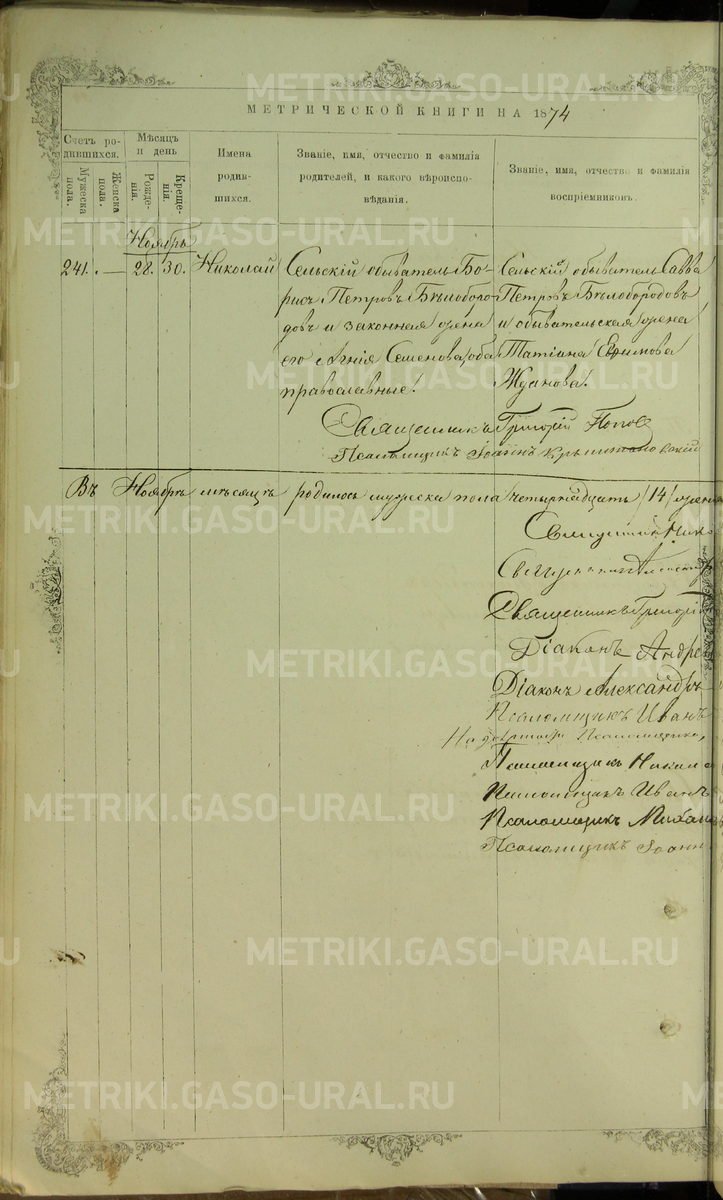 МЕТРИЧЕСКОЙ КНИГИ НА 1874
Счетъ ро-
дившихся.
Мужеска
пола.
Женска
пола.
Мѣсяцъ
и день
Рожде-
нія.
Креще-
нія.
Имена
родив-
шихся.
Званіе, имя, отчество и фамилія
родителей, и какого вѣроиспо-
вѣданія.
Званіе, имя, отчество и фамилія
воспріемниковъ.
Ноябрь
241. — 28. 30. Николай
Сельскій обыватель Бо-
рисъ Петровъ Бѣлоборо-
довъ и законная жена
его Агнія Семенова, оба
православные.
Сельскій обыватель Савва
Петровъ Бѣлобородовъ
и обывательская жена
Татіана Ефимова
Жданова.
Священникъ Григорій Попов
Псаломщикъ Іоаннъ
Въ Ноябрѣ мѣсяцѣ родилось мужеска пола четырнадцать /14/
Священникъ
Священникъ
Священникъ Григорій
Діаконъ Андре
Діаконъ Александръ
Псаломщикъ Иванъ
Псаломщика,
Псаломщикъ
Псаломщикъ Иванъ
Псаломщикъ Михаилъ
Псаломщикъ Іоанн
METRIKI.GASO-URAL.RU